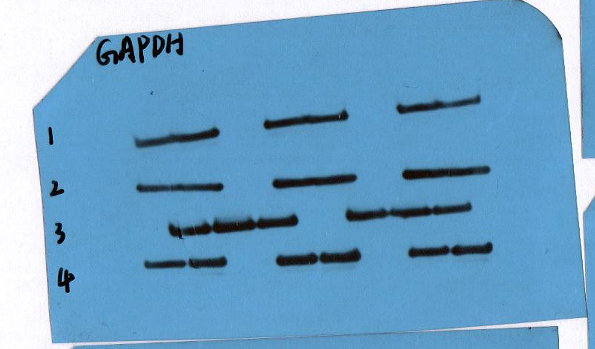 GAPDH
1
2
3
4